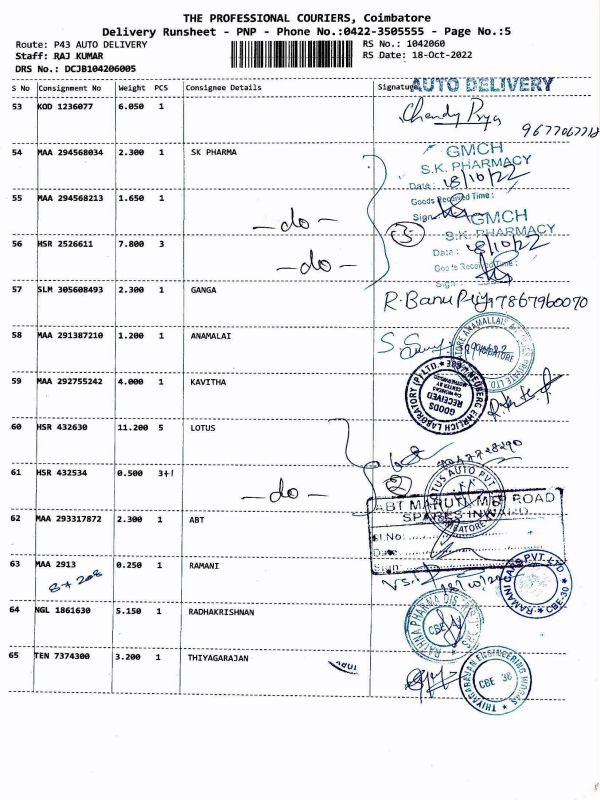 THE PROFESSIONAL COURIERS, Coimbatore
Delivery Runsheet - PNP - Phone No.:0422-3505555 - Page No.:5
Route: P43 AUTO DELIVERY
RS No.: 1042060
Staff: RAJ KUMAR
RS Date: 18-Oct-2022
DRS No.: DCJB104206005
S No Consignment No Weight PCS Consignee Details Signature
AUTO DELIVERY
53 KOD 1236077 6.050 1
Chandy Prya
54 MAA 294568034 2.300 1 SK PHARMA
GMCH
S.K. PHARMACY
Date: 18/10/22
Goods Received Time:
Sign
55 MAA 294568213 1.650 1
- do -
3
GMCH
S.K. PHARMACY
Date: 18/10/22
Goods Received Time:
Sign:
56 HSR 2526611 7.800 3
- do -
57 SLM 305608493 2.300 1 GANGA
R. Banu Priya 7867960070
58 MAA 291387210 1.200 1 ANAMALAI
59 MAA 292755242 4.000 1 KAVITHA
GOODS
RECEIVED
60 HSR 432630 11.200 5 LOTUS
61 HSR 432534 0.500 3+1
- do -
2
LOTUS AUTO PVT
62 MAA 293317872 2.300 1 ABT
ABT MARUTI MTP ROAD
SPARES INWARD
Sl.No:
Date
Sign:
63 MAA 2913 0.250 1 RAMANI
8*208
18/10/22
RAMANI CARS PVT. LTD
CBE-30
64 NGL 1861630 5.150 1 RADHAKRISHNAN
RATHNA PHARMA DISTRIBUTORS
CBE
65 TEN 7374300 3.200 1 THIYAGARAJAN
THIYAGARAJAN ENGINEERING WORKS
CBE 38